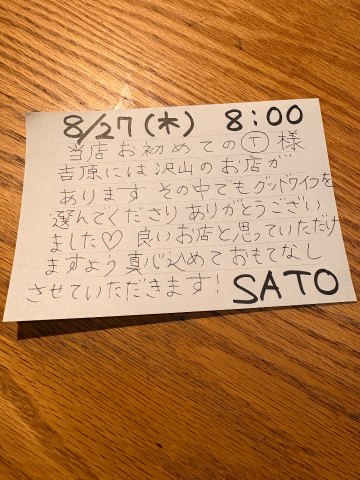 8/27(木) 8:00
当店お初めてのⓉ様
吉原には沢山のお店が
あります その中でもグッドワイフを
選んでくださり ありがとうござい
ました♡ 良いお店と思っていただけ
ますよう 真心込めて おもてなし
させていただきます! SATO